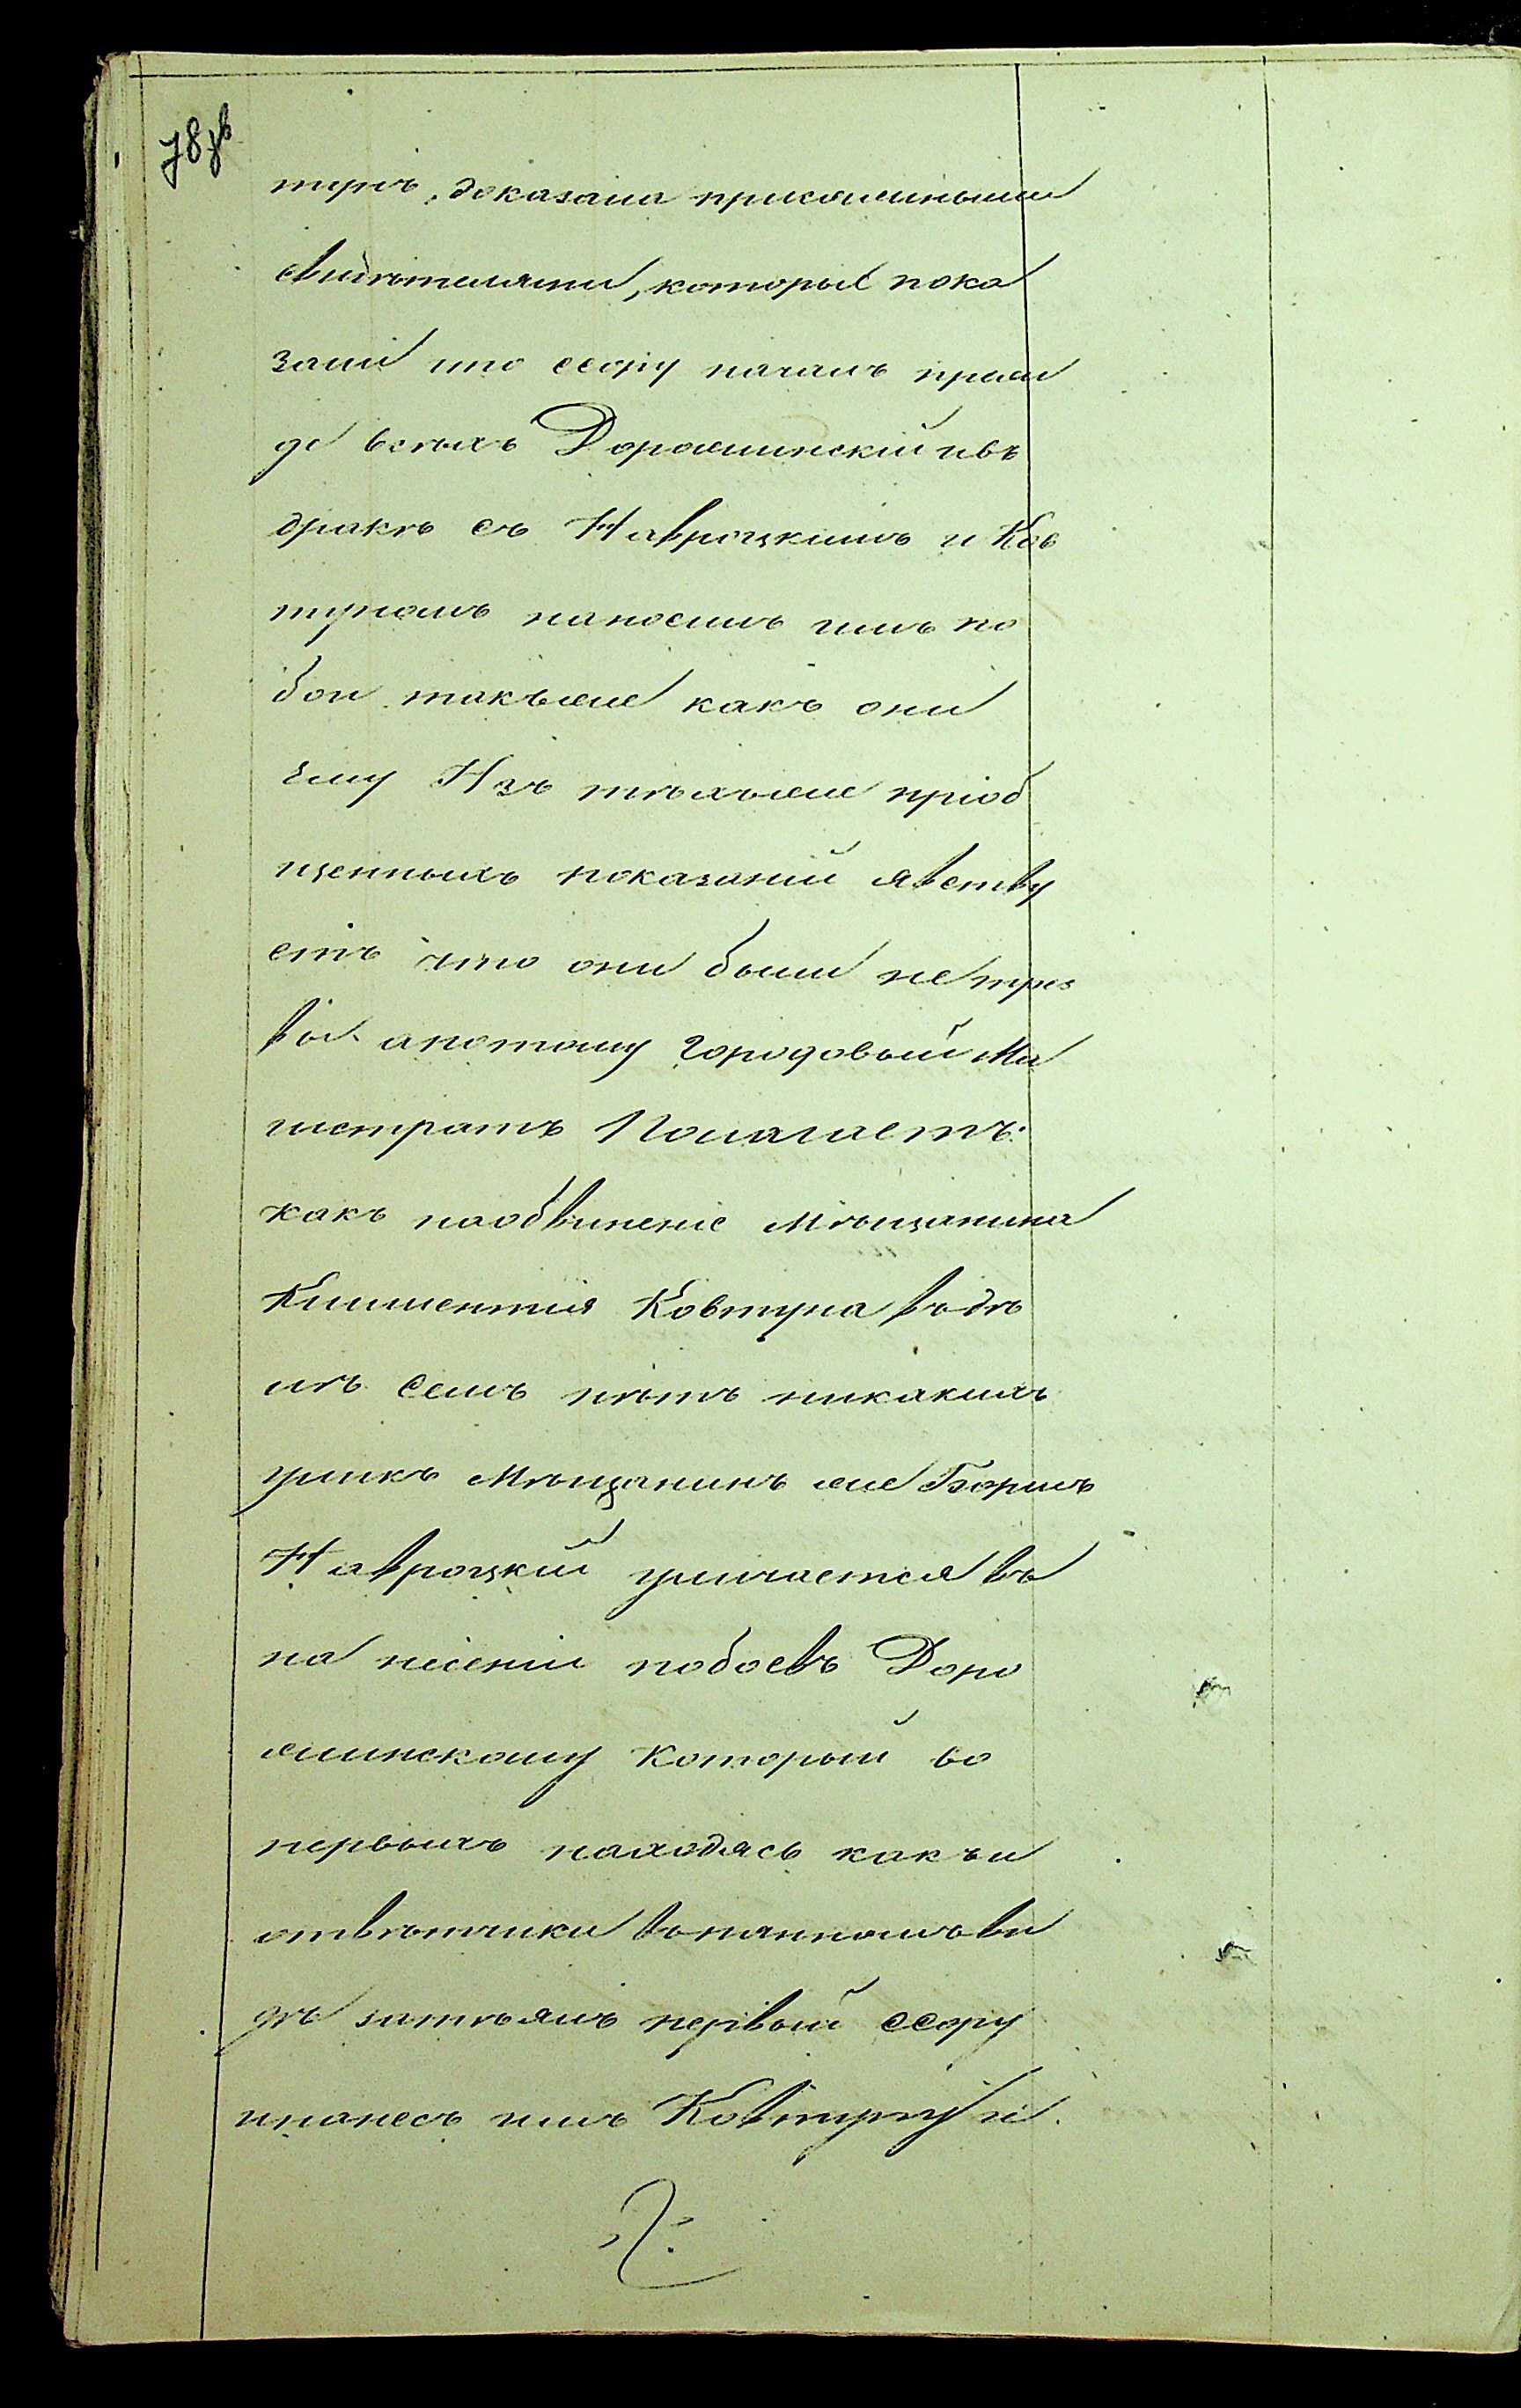 78 зв
тиръ, доказана присяжными
свидѣтелями, которые пока
зали что ссору началъ преж
де всѣхъ Дорожинскій ивъ
дракѣ съ Навроцкимъ и Ков
туномъ наносилъ имъ по
бои такъже какъ они
ему Изъ тѣхъже пріоб
щенныхъ показаній явству
етъ что они были не трез
вы апотому городовый Ма
гистратъ Полагаетъ:
какъ наобвиненіе Мѣщанина
Климентія Ковтуна въдѣ
лѣ семъ нѣтъ никакихъ
уликъ Мѣщанинъ же Борисъ
Навроцкій уличается въ
на несеніи побоевъ Доро
жинскому который во
первыхъ находясь какъ и
отвѣтчики въпянномъ ви
дѣ затѣялъ первый ссору
инанесъ имъ Ковтуну и